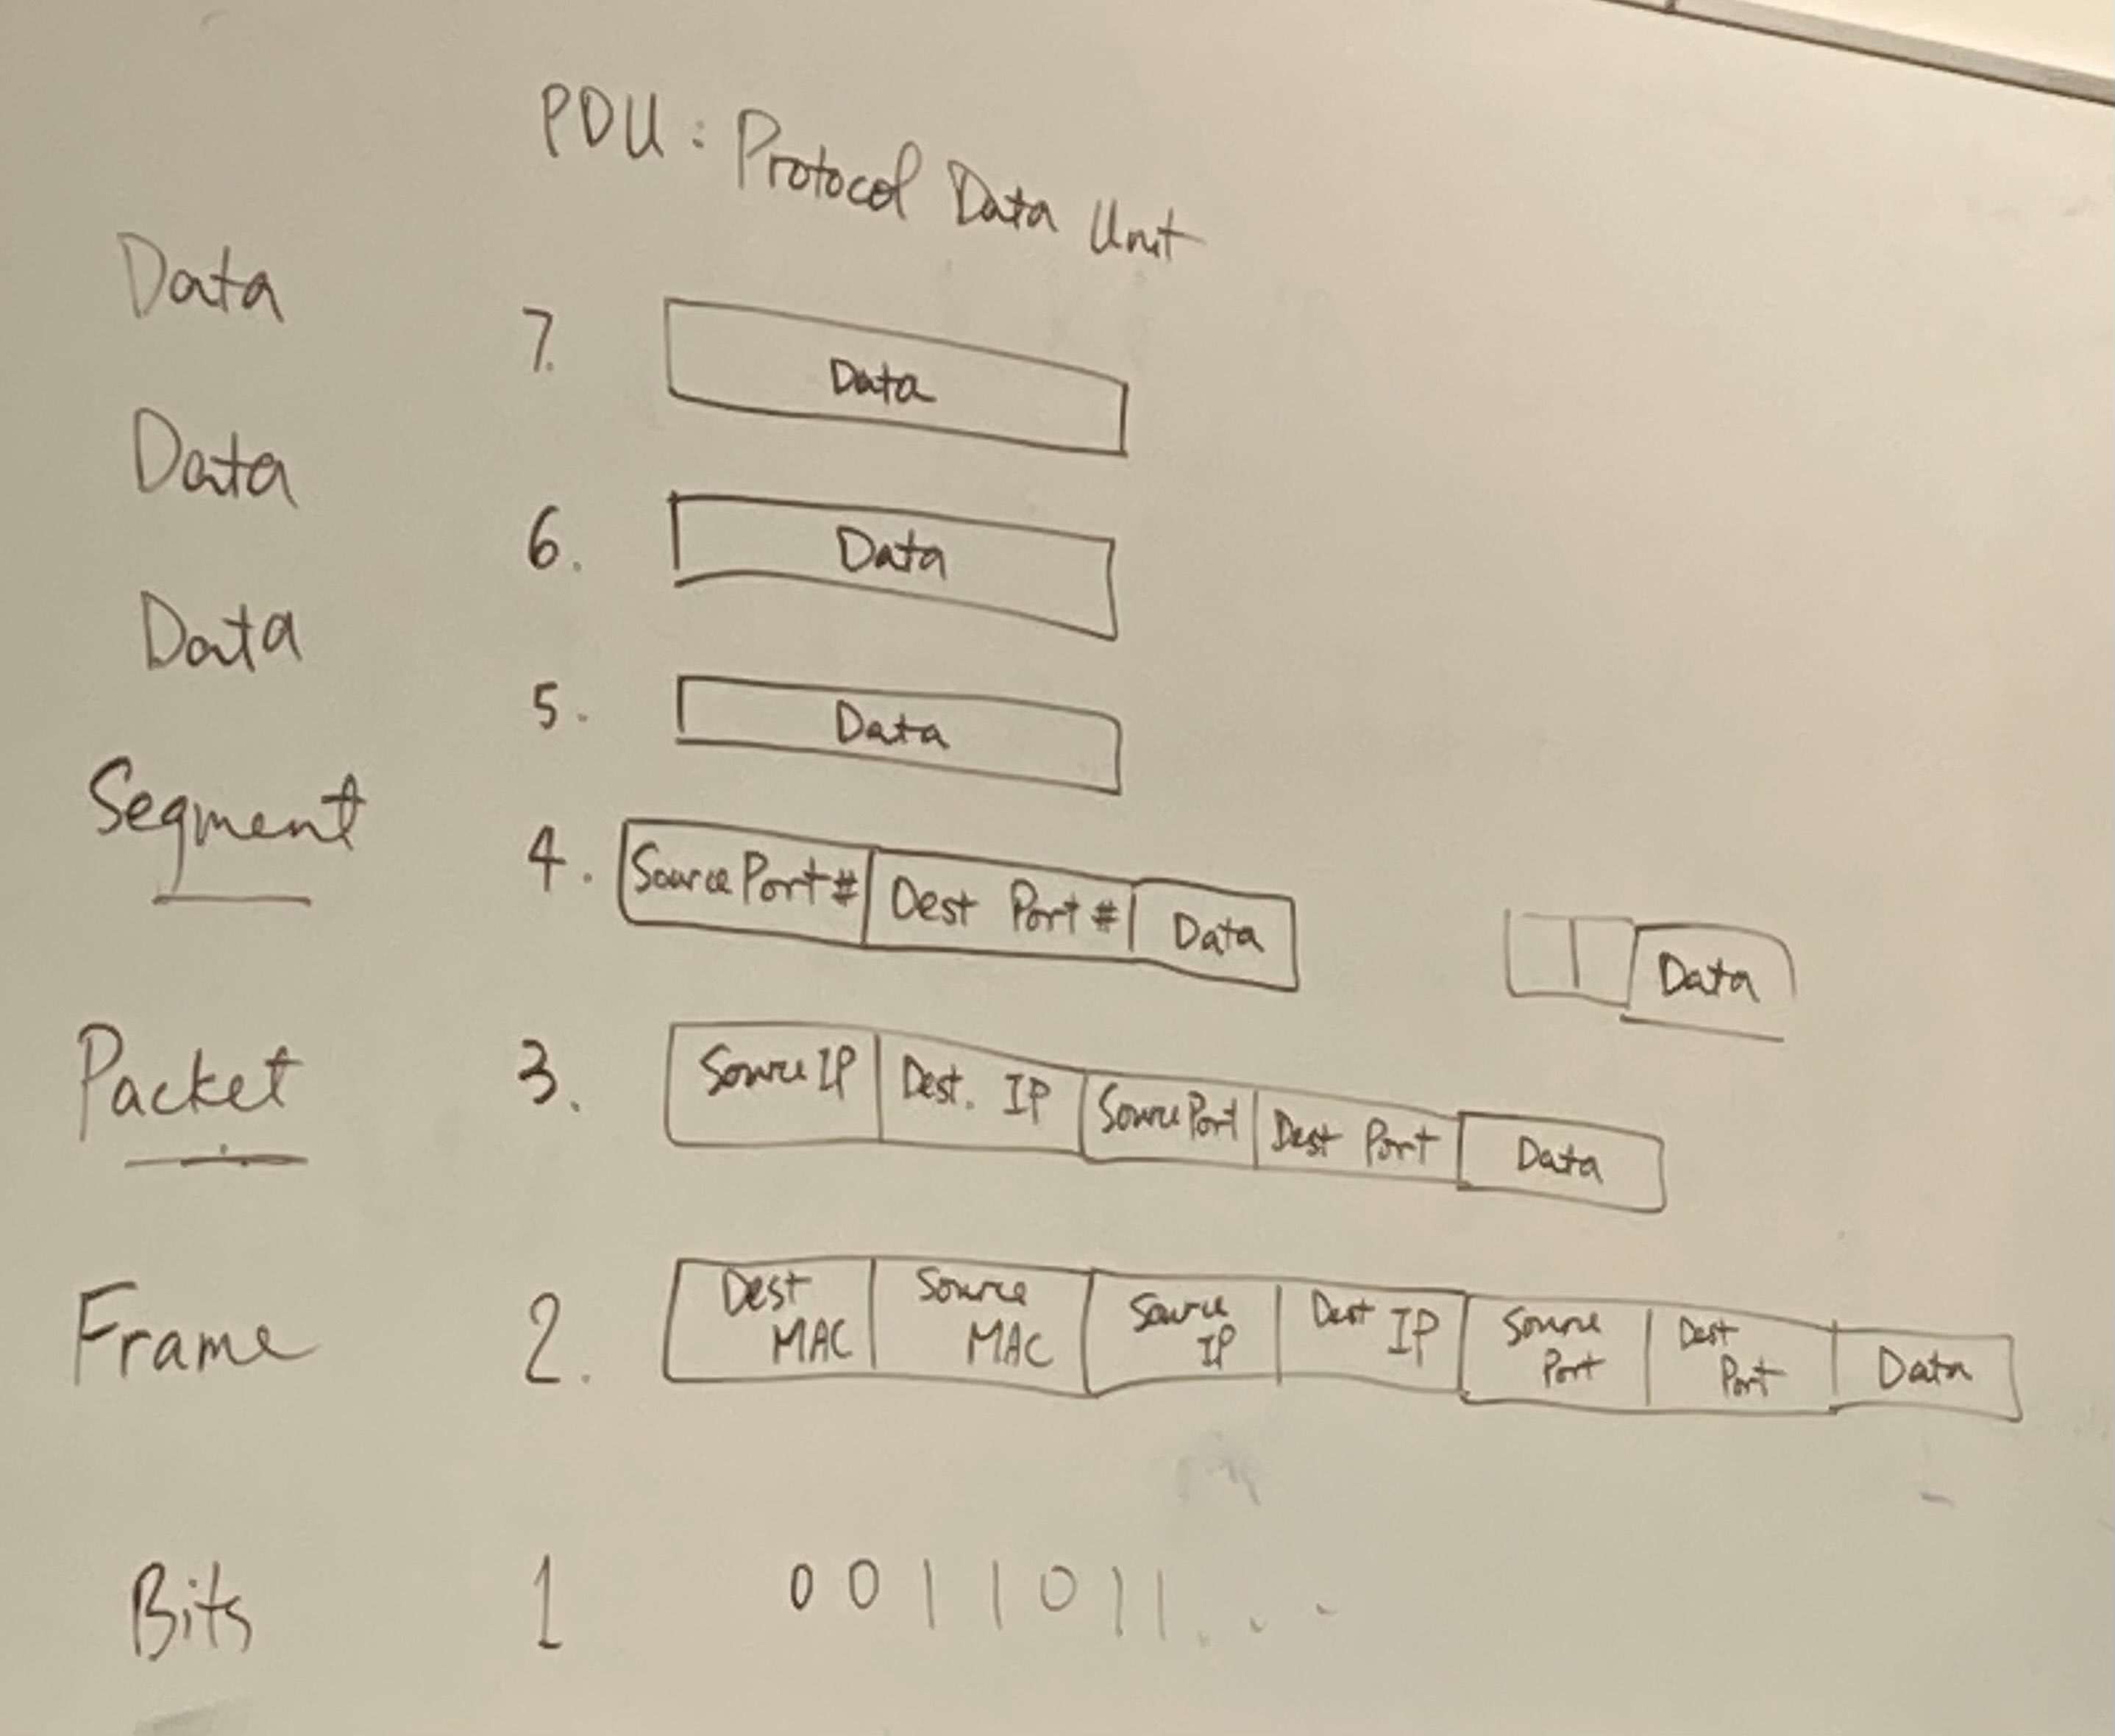 PDU : Protocol Data Unit
Data 7. Data
Data 6. Data
Data 5. Data
Segment 4. Source Port # Dest Port # Data
Data
Packet 3. Source IP Dest. IP Source Port Dest Port Data
Frame 2. Dest MAC Source MAC Source IP Dest IP Source Port Dest Port Data
Bits 1 0 0 1 1 0 1 1 . . .